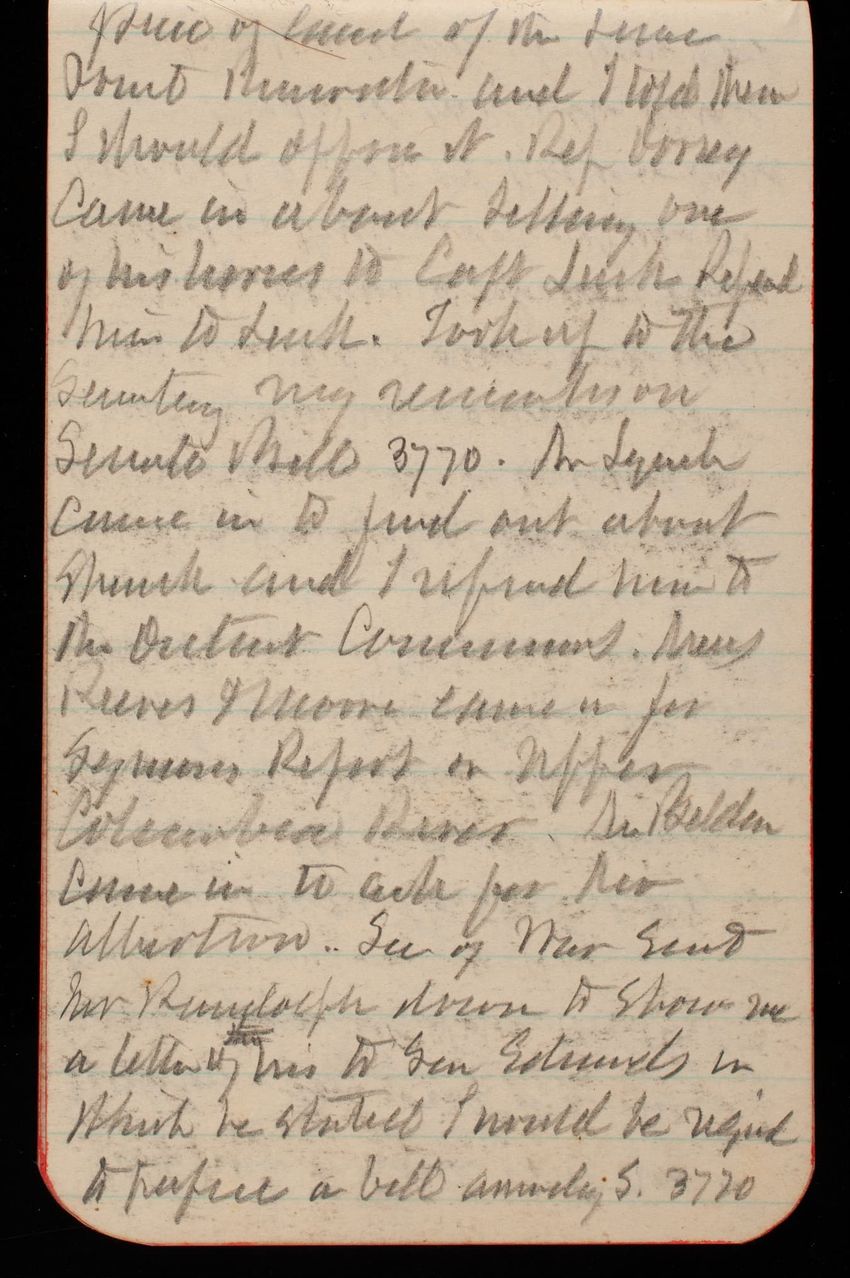 price of land of the same
Joint and I told them
I should oppose it. Rep Dorsey
Came in about selling one
of his horses to Capt Lusk Refered
him to Lusk. Took up to the
Secretary my remarks on
Senate Bill 3770. Mr Lynch
came in to find out about
and I refered him to
the District Commrs. Mess
Reeves & Moore came in for
Symons Report on Upper
Columbia River. Mr Belden
came in to ask for his
Sec of War sent
Mr Randolph down to show me
a letter of his to Sen Edmunds in
which he stated I would be reqird
to prepare a bill amendg S. 3770